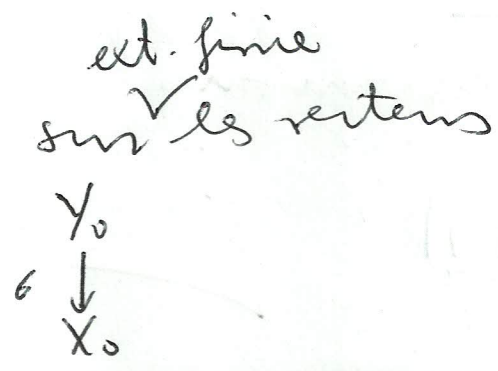 ext. finie
sur les vecteurs
Y₀
↓
X₀